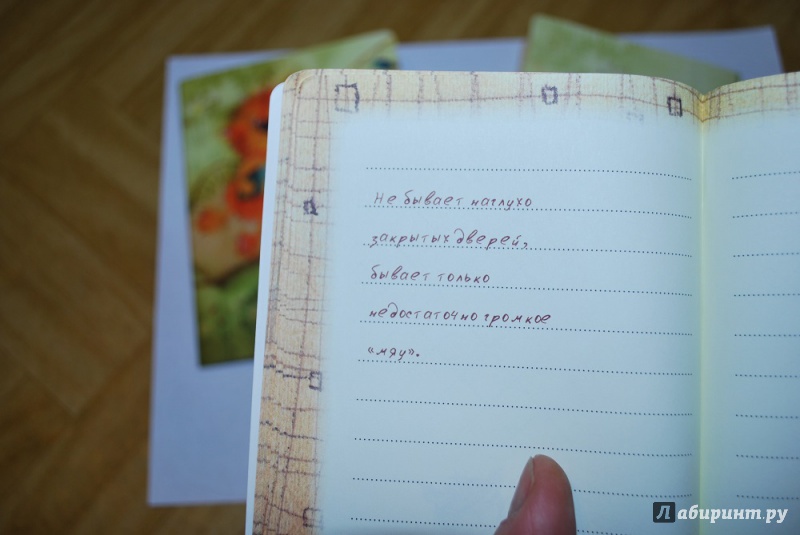 Не бывает наглухо
закрытых дверей,
бывает только
недостаточно громкое
«мяу».
Лабиринт.ру